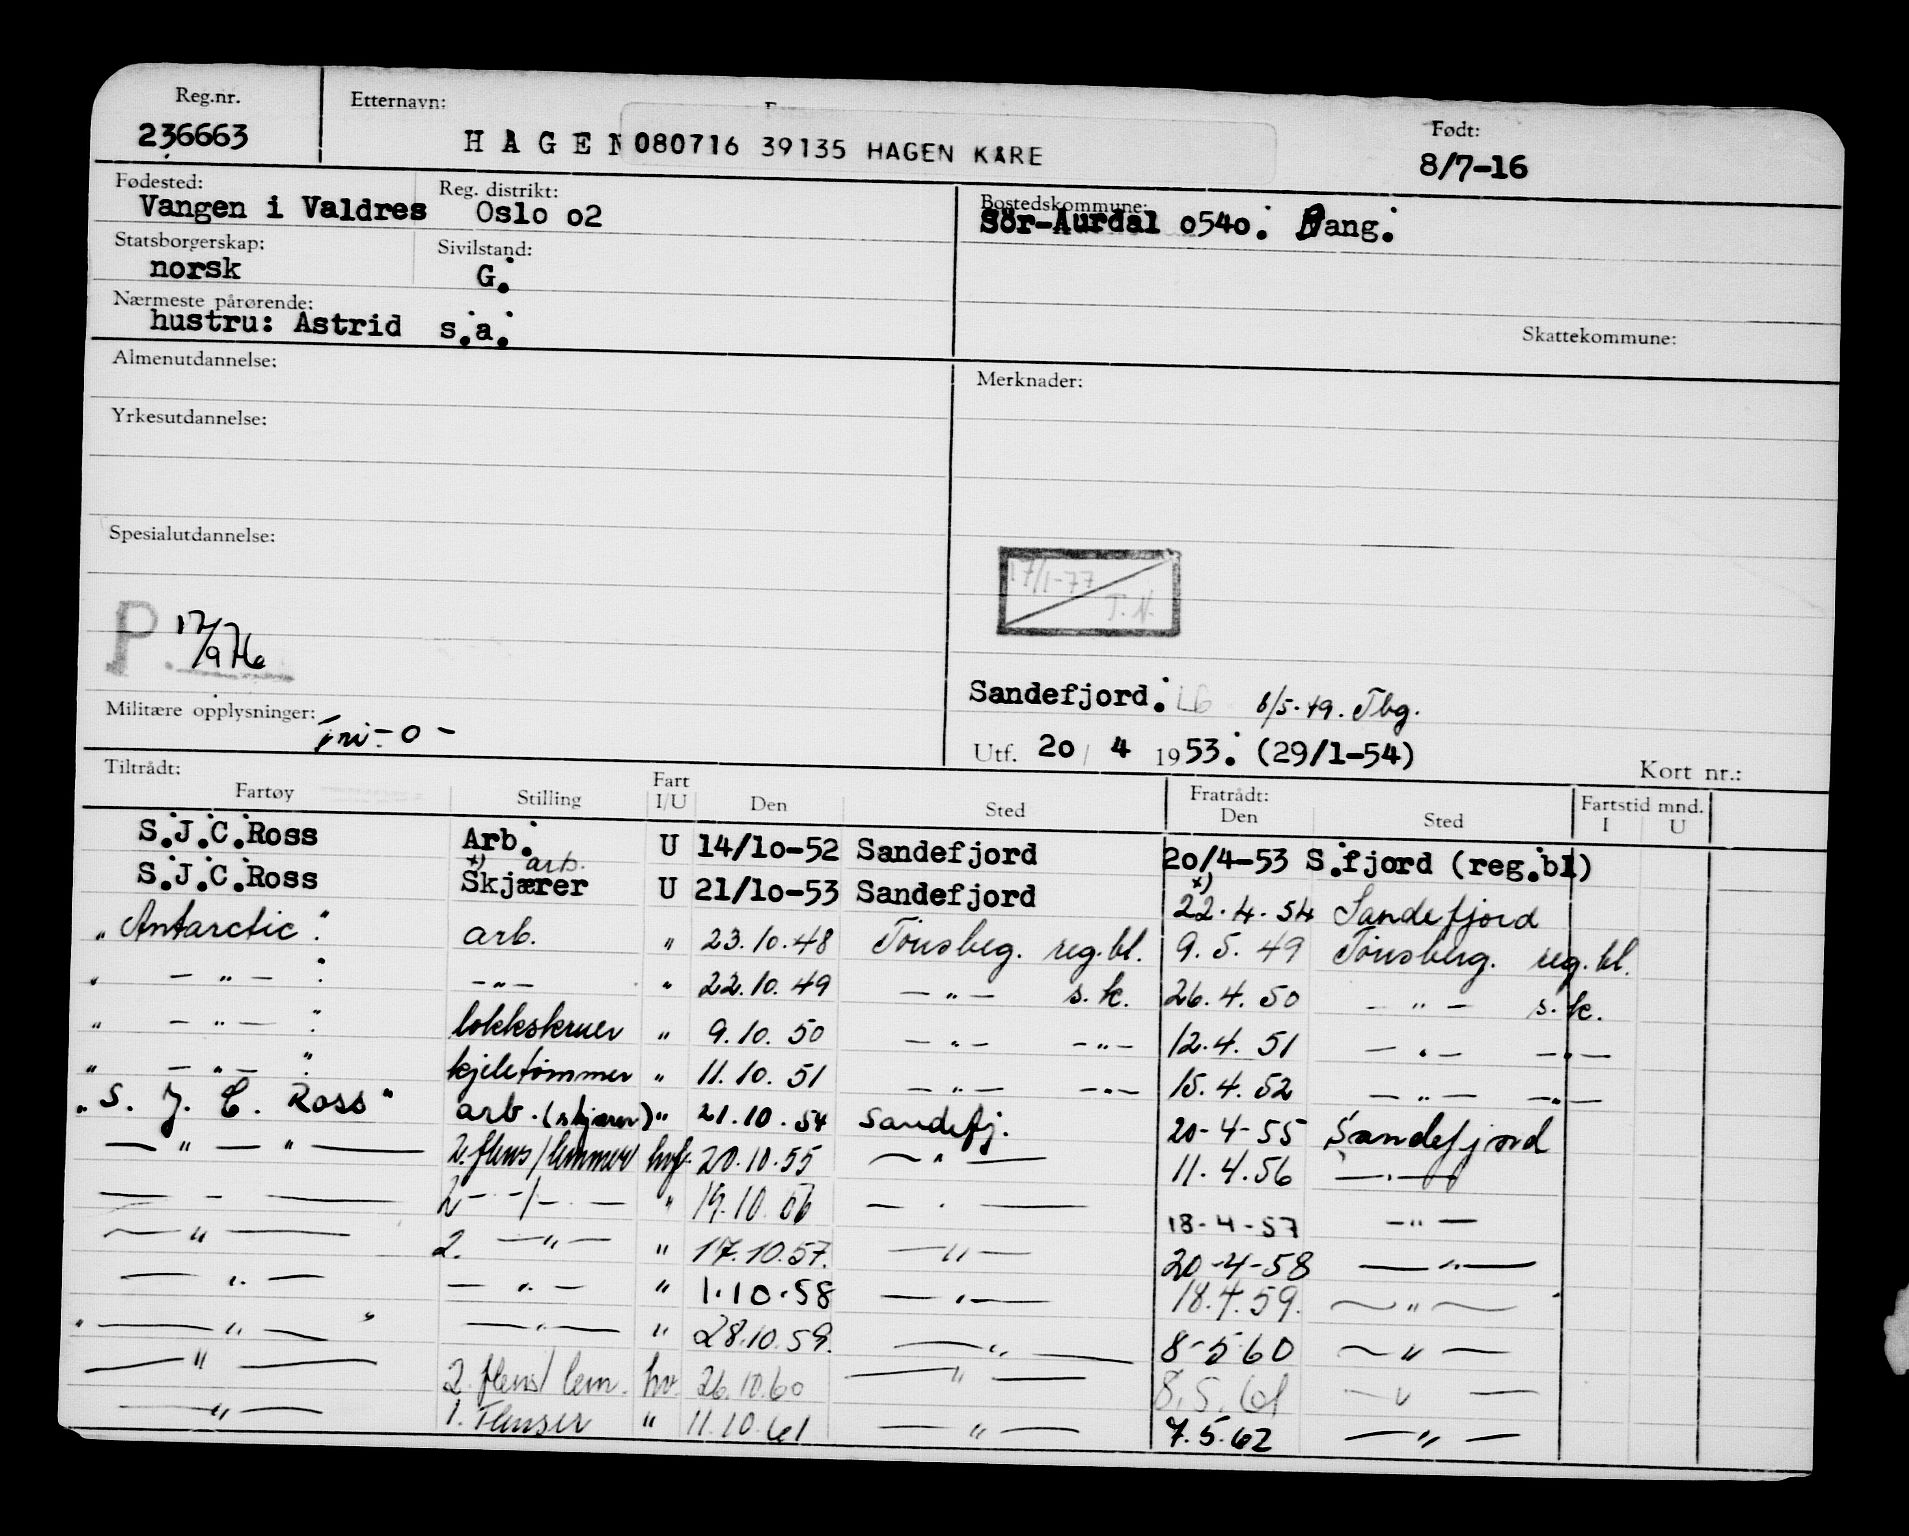 Reg.nr. Etternavn: Født:
236663 H A G E N 080716 39135 HAGEN KARE 8/7-16
Fødested: Reg. distrikt: Bostedskommune:
Vangen i Valdres Oslo o2 Sör-Aurdal o54o. Bang.
Statsborgerskap: Sivilstand:
norsk G.
Nærmeste pårørende:
hustru: Astrid s.a.
Skattekommune:
Almenutdannelse: Merknader:
Yrkesutdannelse:
Spesialutdannelse:
17/1-77
T.N.
P. 17/9 76
Sandefjord. LG 6/5.49. Tbg.
Militære opplysninger: -0-
Utf. 2o / 4 1953. (29/1-54)
Kort nr.:
Tiltrådt: Fart Fratrådt: Fartstid mnd.
Fartøy Stilling I/U Den Sted Den Sted I U
S.J.C.Ross Arb. U 14/1o-52 Sandefjord 2o/4-53 S.fjord (reg.bl)
x) arb. x)
S.J.C.Ross Skjærer U 21/1o-53 Sandefjord 22.4.54 Sandefjord
„Antarctic" arb. " 23.10.48 Tönsbeg. reg.bl. 9.5.49 Tönsberg. reg.bl.
" — " — " — " — " 22.10.49 — " — s.k. 26.4.50 — " — s.k.
" — " — " lokkskruer " 9.10.50 — " — — " — 12.4.51 — " — — " —
" — " — " kjeletömmer " 11.10.51 — " — — " — 15.4.52 — " — — " —
„S. J. C. Ross" arb. (skjærer) " 21.10.54 Sandefj. 20-4-55 Sandefjord
— " — " — 2. flens/lemmer hvf. 20.10.55 — " — 11.4.56 — " —
— - — 2 - - / - — " 19.10.56 — . — 18-4-57 — " —
— " — 2. — " — " 17.10.57. — " — 20-4-58 — " —
— " — — " — " 1.10.58 — " — 18.4.59. — " —
" — " — " — " — " 28.10.59. — " — 8-5 60 — " —
— " — 2. flens/lem. hv. 26.10.60 — " — 8.5.61 — " —
— " — 1. Flenser " 11.10.61 — " — 7.5.62 — " —